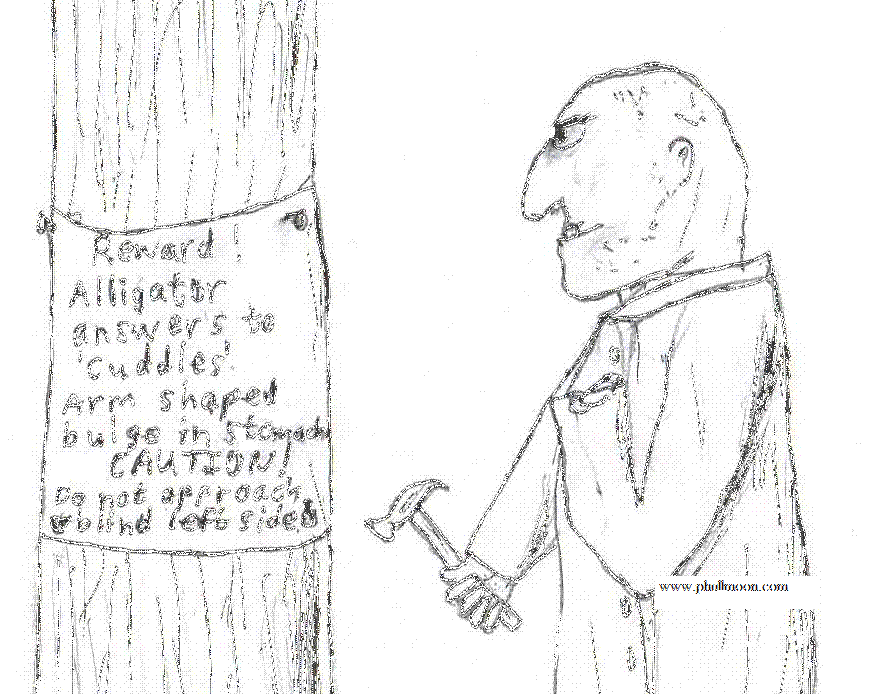 Reward !
Alligator
answers to
'Cuddles'.
Arm shaped
bulge in stomach
CAUTION!
Do not approach
blind left side
www.phullmoon.com